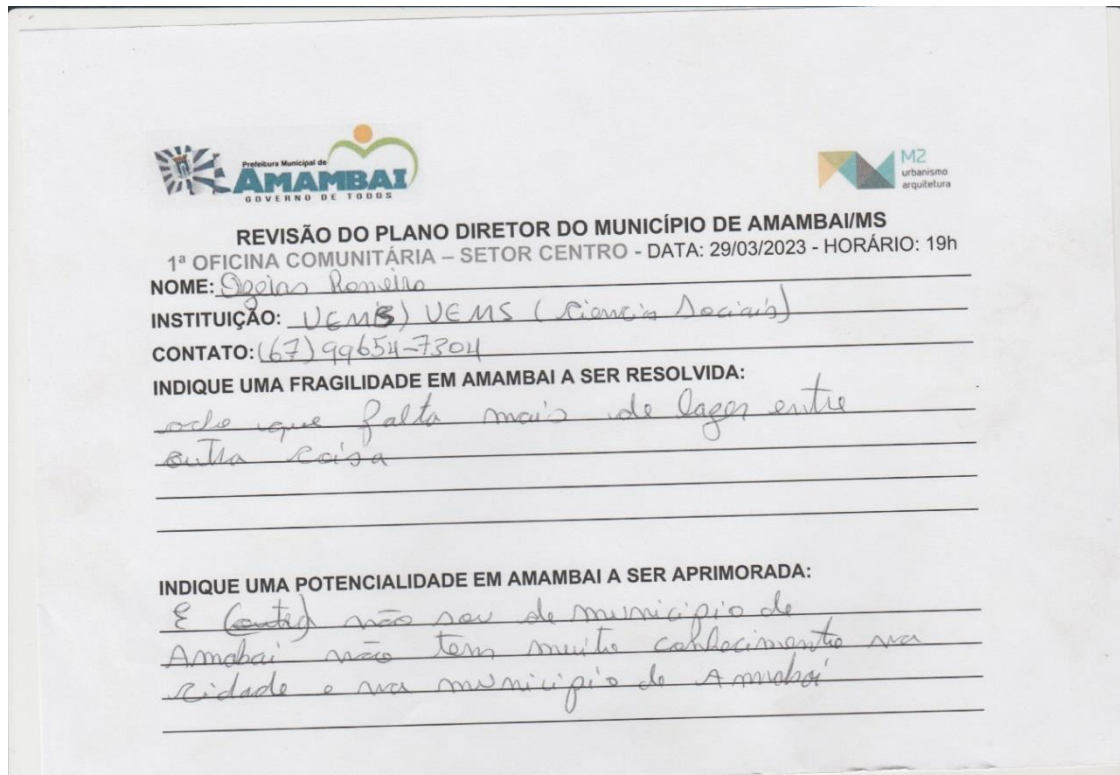 Prefeitura Municipal de
AMAMBAI
GOVERNO DE TODOS
M2
urbanismo
arquitetura
REVISÃO DO PLANO DIRETOR DO MUNICÍPIO DE AMAMBAI/MS
1ª OFICINA COMUNITÁRIA – SETOR CENTRO - DATA: 29/03/2023 - HORÁRIO: 19h
NOME: Romeiro
INSTITUIÇÃO: UEMS) UEMS (Ciencia Sociais)
CONTATO: (67) 99654-7304
INDIQUE UMA FRAGILIDADE EM AMAMBAI A SER RESOLVIDA:
acho que falta mais de lazer entre
outra coisa
INDIQUE UMA POTENCIALIDADE EM AMAMBAI A SER APRIMORADA:
E não sou de municipio de
Amabai não tem muito conhecimento na
cidade e na municipio de Amabai